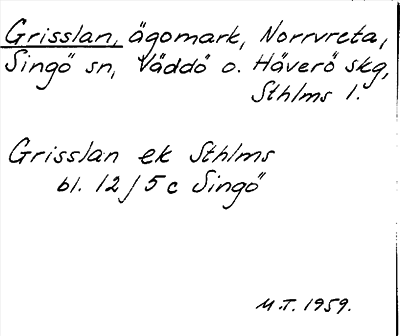 Grisslan, ägomark, Norrvreta,
Singö sn, Väddö o. Häverö skg,
Sthlms l.
Grisslan ek Sthlms
bl. 12 J 5 c Singö
M.T. 1959.